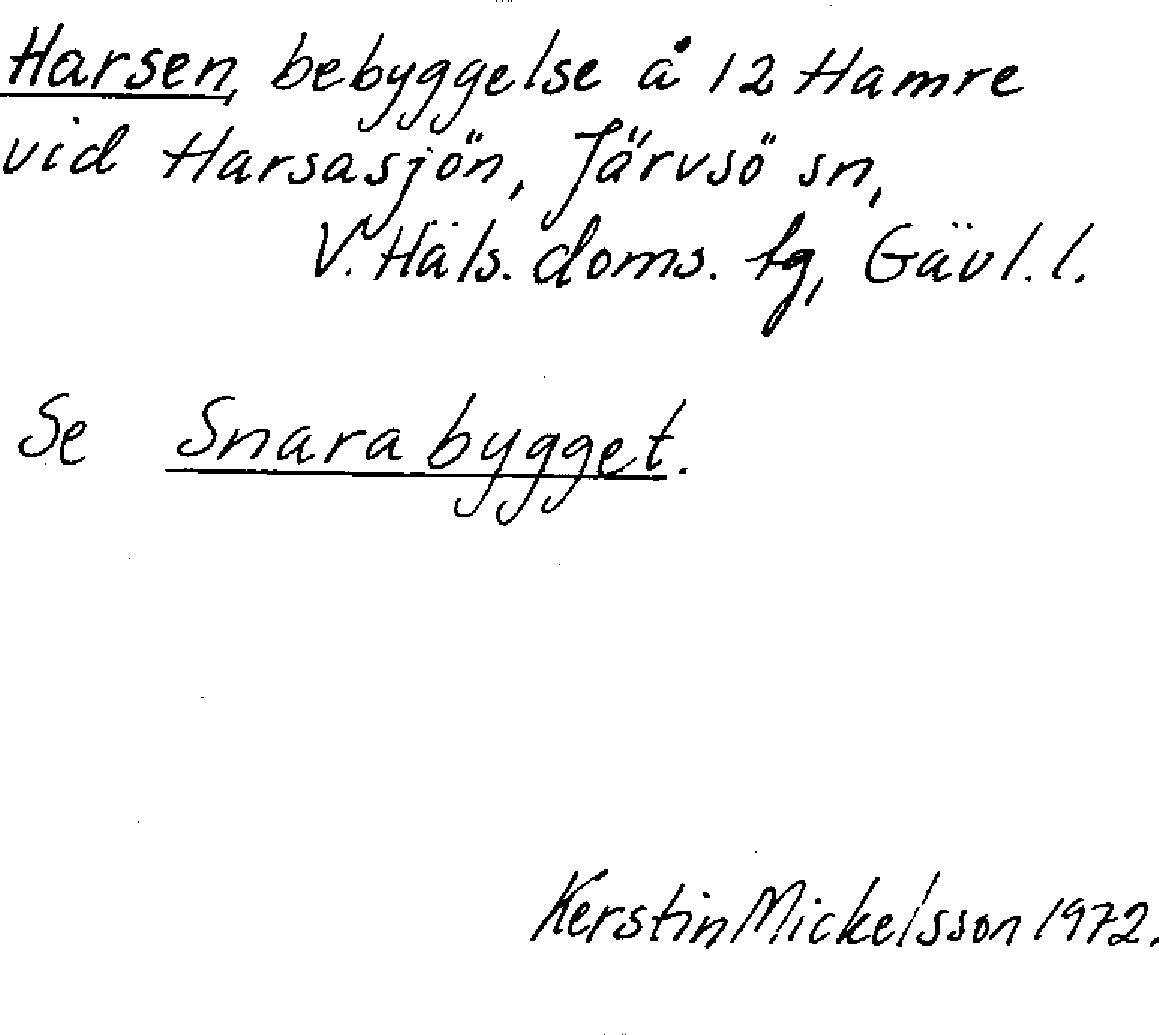 Harsen, bebyggelse å 12 Hamre
vid Harsasjön, Järvsö sn,
V. Häls. doms. tg, Gävl. l.
Se Snarabygget.
Kerstin Mickelsson 1972.